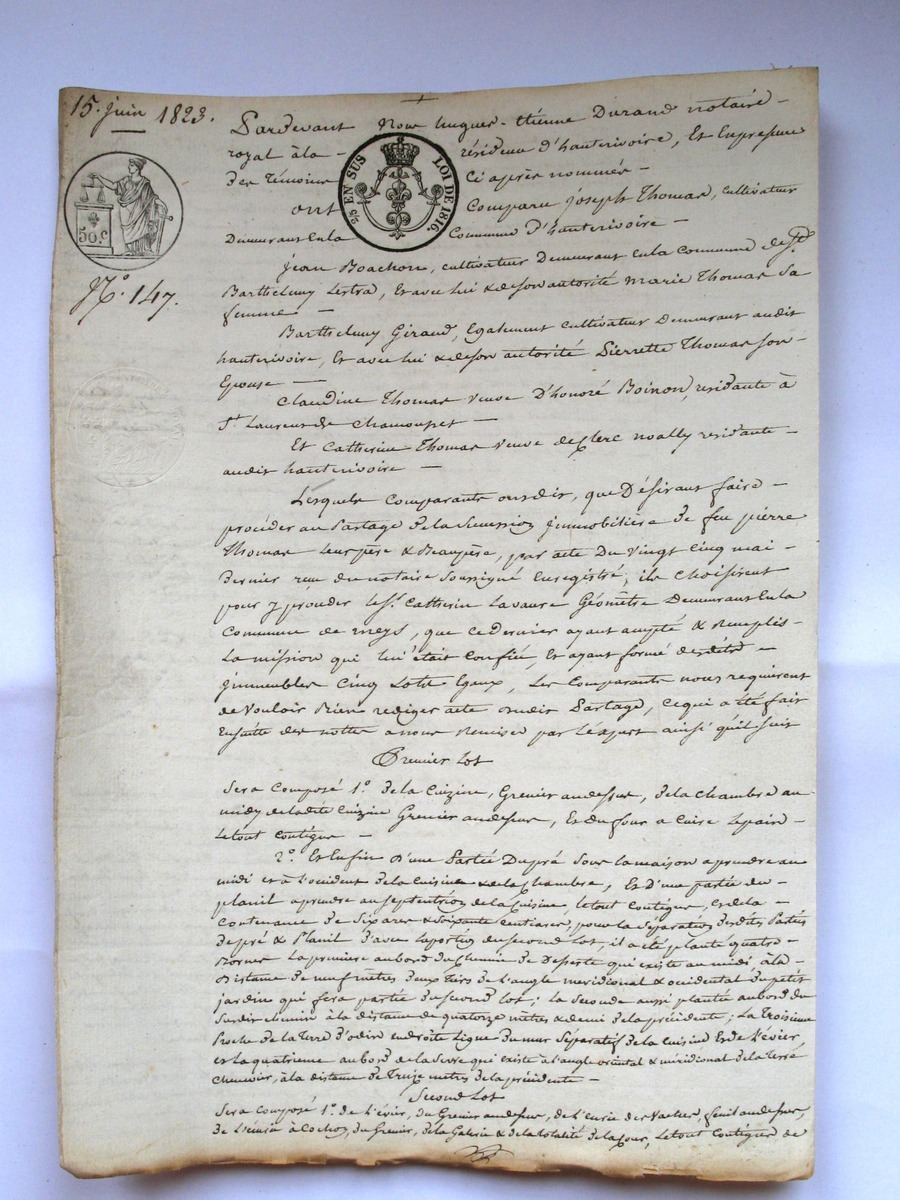 15. juin 1823.
Pardevant Nous hugues-étienne Durand notaire-
royal à la - résidence d'hauterivoire, Et En presence
des témoins Ci après nommés -
25 EN SUS LOI DE 1816.
50 c
ont Comparu joseph Thomas, cultivateur
Demeurant En la Commune d'hauterivoire -
N.° 147.
jean Boachon, cultivateur Demeurant En la Commune de St
Barthelemy Lestra, Et avec lui & de son autorité marie Thomas Sa
femme -
Barthelemy Giraud, Egalement cultivateur Demeurant audit
hauterivoire, Et avec lui & de son autorité Pierrette Thomas son-
Epouse -
Claudine Thomas veuve D'honoré Boinon, residante à
St Laurent de Chamousset -
Et Catherine Thomas veuve de Clerc noally residante -
audit hauterivoire -
Lesquels Comparants ont dit, que Désirant faire -
procéder au Partage de la Succession jmmobilière de feu pierre
Thomas leur père & Beaupère, par acte Du vingt Cinq mai -
dernier reçu du notaire Soussigné Enregistré, ils choisirent
pour y proceder le Sr. Catherin Lavaure Géomètre Demeurant En la
Commune de meys, que ce Dernier ayant accepté & Remplis-
La mission qui lui était Confiée, Et ayant formé desdits -
jmmeubles Cinq Lots Egaux, Les Comparants nous requierent
de Vouloir Bien rediger acte dudit Partage, ce qui a été fait
Ensuite des nottes a nous Remises par l'Expert ainsi qu'il suit
Premier Lot
Sera Composé 1.° de la Cuizine, Grenier au dessus, de la chambre au
midy de ladite Cuizine Grenier au dessus, Et du four a Cuire le pain -
Le tout Contigue -
2.° Et Enfin d'une Partie Du pré Sous la maison a prendre au
midi et à l'occident de la Cuisine & de la Chambre, Et d'une partie du -
planil a prendre au Septentrion de la Cuisine, le tout Contigue, Et de la -
Contenance de Six ares & Soixante Centiares, pour la Séparation desdites Parties
de pré & Planil d'avec la portion du Second Lot, il a été planté quatre -
Bornes La première au bord du Chemin de Desserte qui existe au midi à la -
Distance de neuf mètres deux tiers de l'angle meridional & occidental du petit
jardin qui fera partie du Second Lot; la Seconde aussi plantée au bord du
Susdit chemin à la distance de quatorze mètres & demi de la précédente; La Troisieme
Proche de la Terre d'odin en droite Ligne du mur Séparatif de la Cuisine Et de l'évier,
et la quatrieme au bord de la Serve qui existe à l'angle oriental & méridional de la terre
Chenevier, à la distance de Treize metres de la précédente -
Second Lot
Sera Composé 1.° de l'évier, du Grenier au dessus, de l'Ecurie des Vaches, fenil au dessus,
de l'écurie à Cochon, du Grenier, de la Galerie & de la totalité de la Cour, Le tout Contigue de